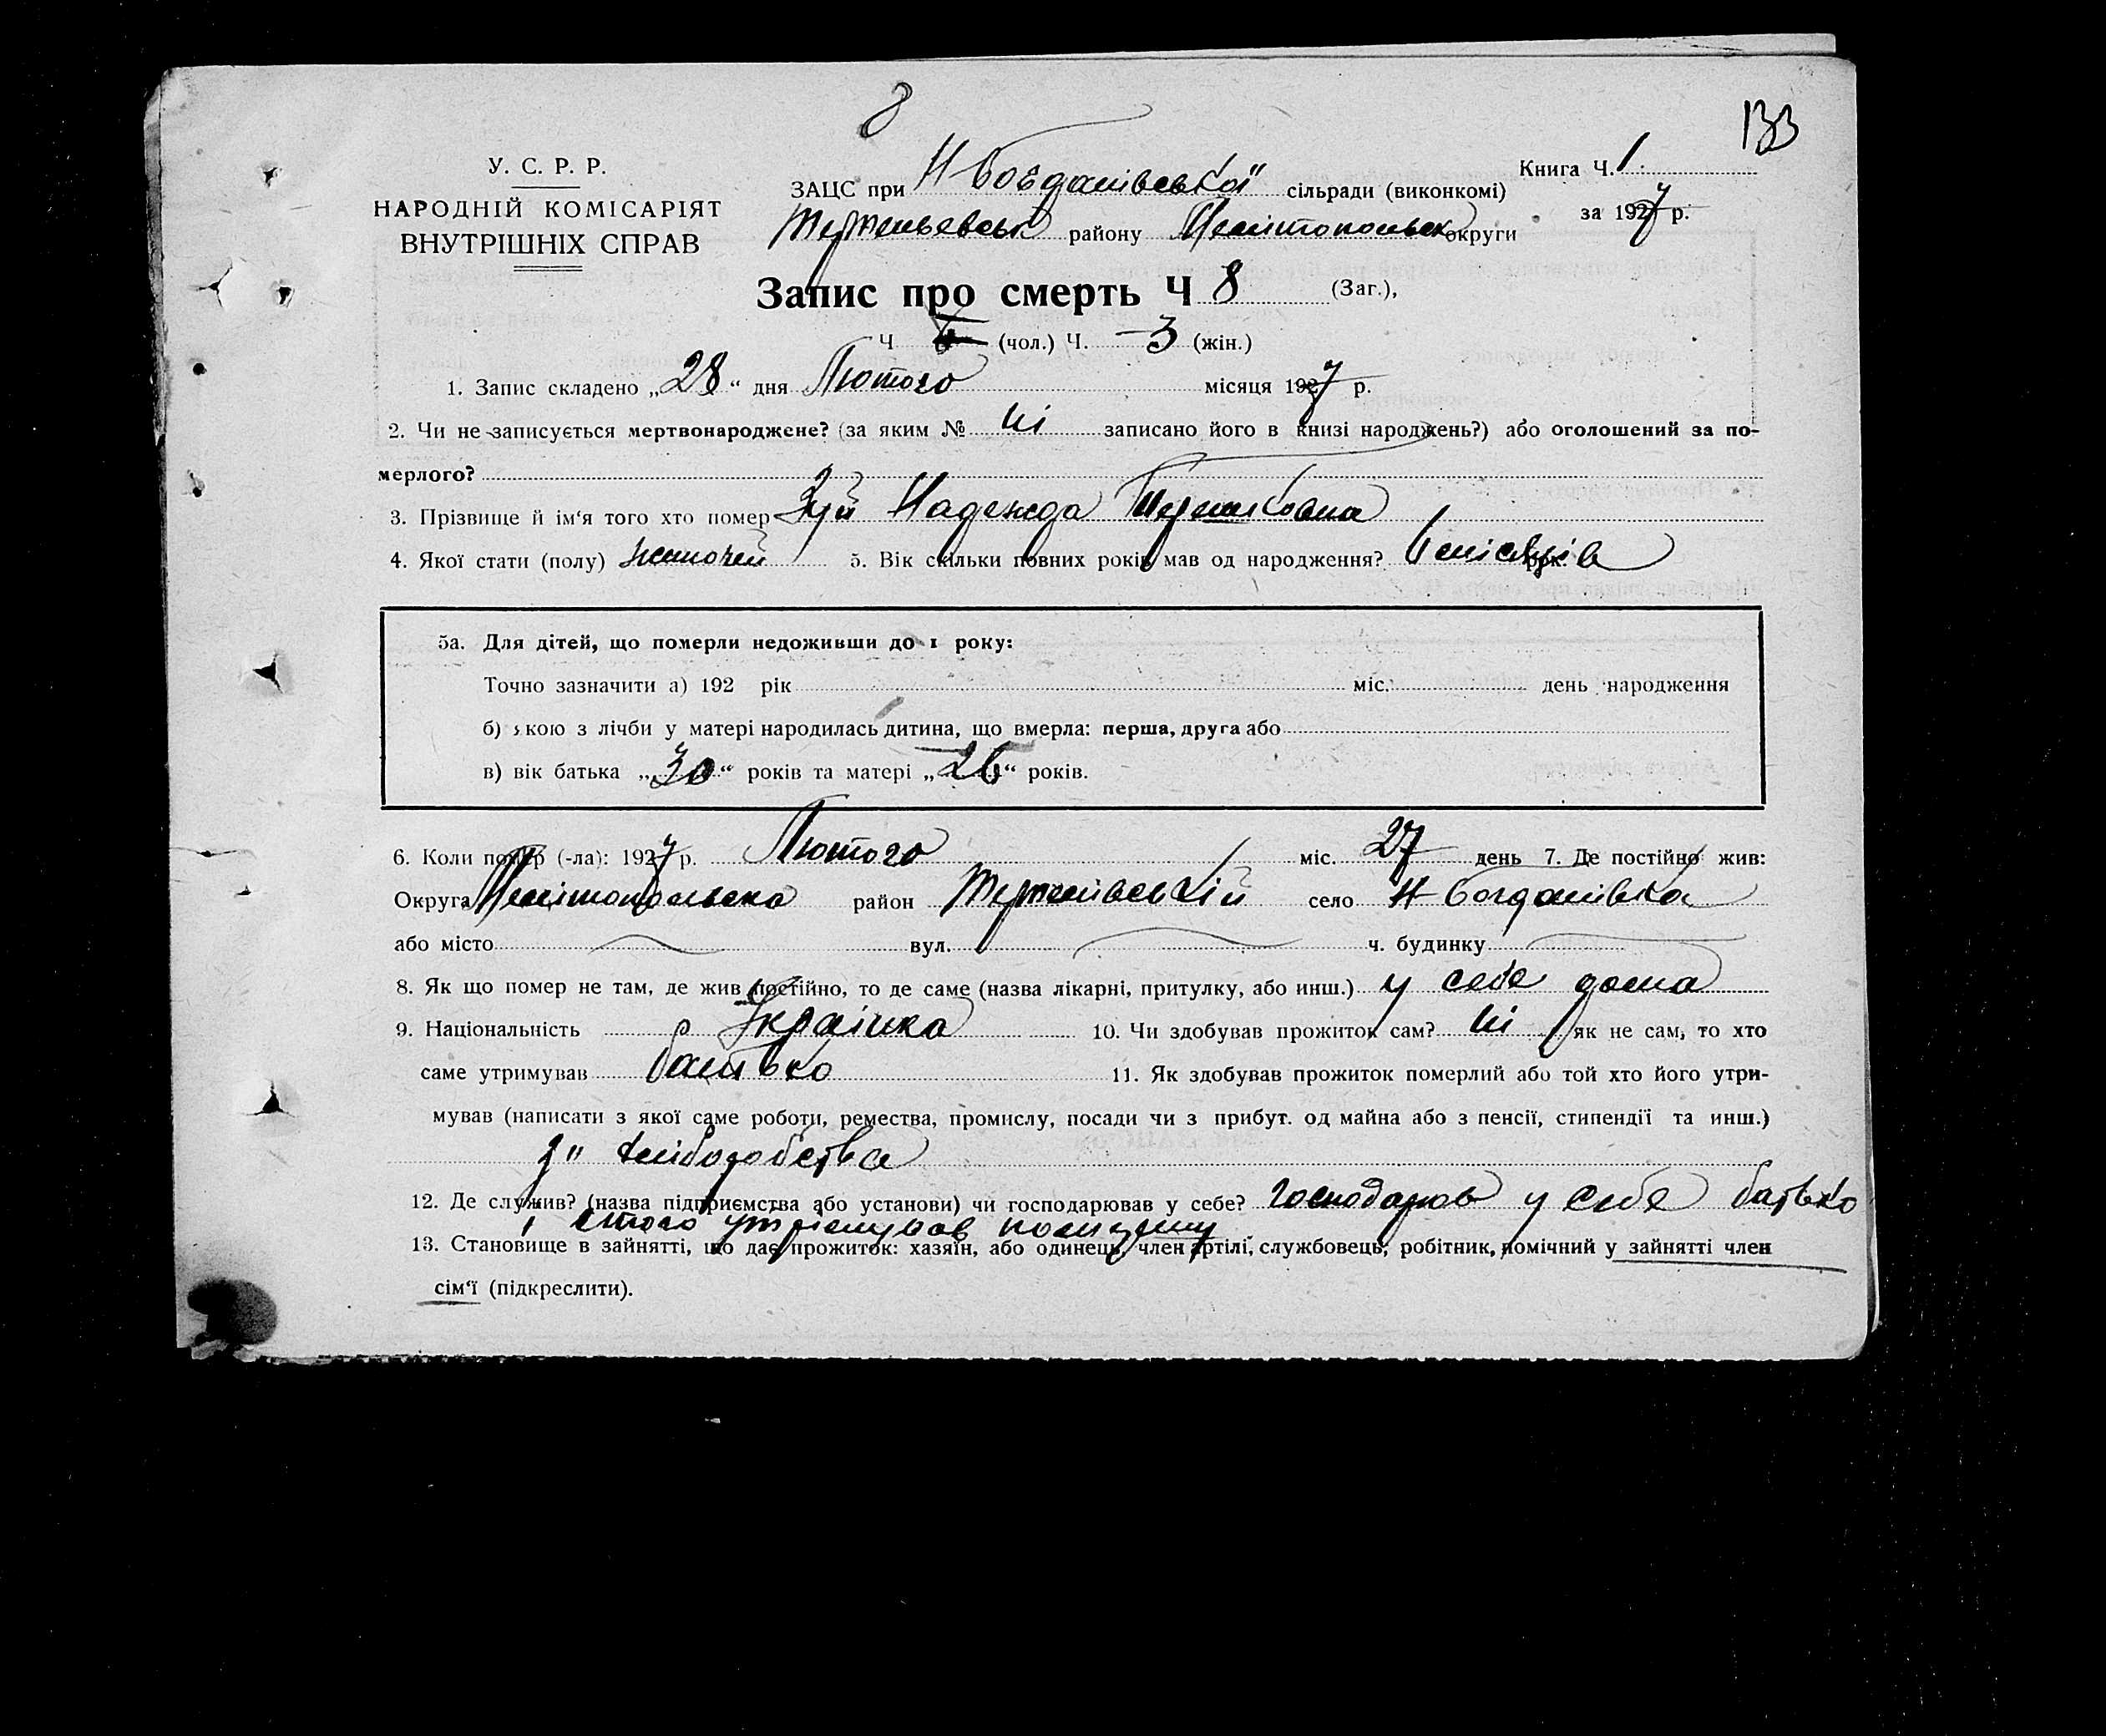 8
133
У. С. Р. Р.
НАРОДНІЙ КОМІСАРІЯТ
ВНУТРІШНІХ СПРАВ
ЗАЦС при Н Богданівської сільради (виконкомі)
району Мелітопольск округи
Книга Ч. 1
за 1927 р.
Запис про смерть Ч 8 (Заг.),
Ч (чол.) Ч. 3 (жін.)
1. Запис складено „28“ дня Лютого місяця 1927 р.
2. Чи не записується мертвонароджене? (за яким № ні записано його в книзі народжень?) або оголошений за по-
мерлого?
3. Прізвище й ім‘я того хто помер Зуй Надежда
4. Якої стати (полу) жіночей 5. Вік скільки повних років мав од народження? 6 місяців рок.
5а. Для дітей, що померли недоживши до 1 року:
Точно зазначити а) 192 рік міс. день народження
б) якою з лічби у матері народилась дитина, що вмерла: перша, друга або
в) вік батька „30“ років та матері „26“ років.
6. Коли помер (-ла): 1927 р. Лютого міс. 27 день 7. Де постійно жив:
Округа Мелітопольска район село Н Богданівка
або місто вул. ч. будинку
8. Як що помер не там, де жив постійно, то де саме (назва лікарні, притулку, або инш.) у себе дома
9. Національність Українка 10. Чи здобував прожиток сам? ні як не сам, то хто
саме утримував батько 11. Як здобував прожиток померлий або той хто його утри-
мував (написати з якої саме роботи, ремества, промислу, посади чи з прибут. од майна або з пенсії, стипендії та инш.)
з хліборобства
12. Де служив? (назва підприємства або установи) чи господарював у себе? господарював у себе батько
і утрімував
13. Становище в зайнятті, що дає прожиток: хазяїн, або одинець, член артілі, службовець, робітник, помічний у зайнятті член
сім‘ї (підкреслити).